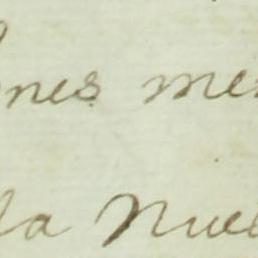 ones me
la Nue